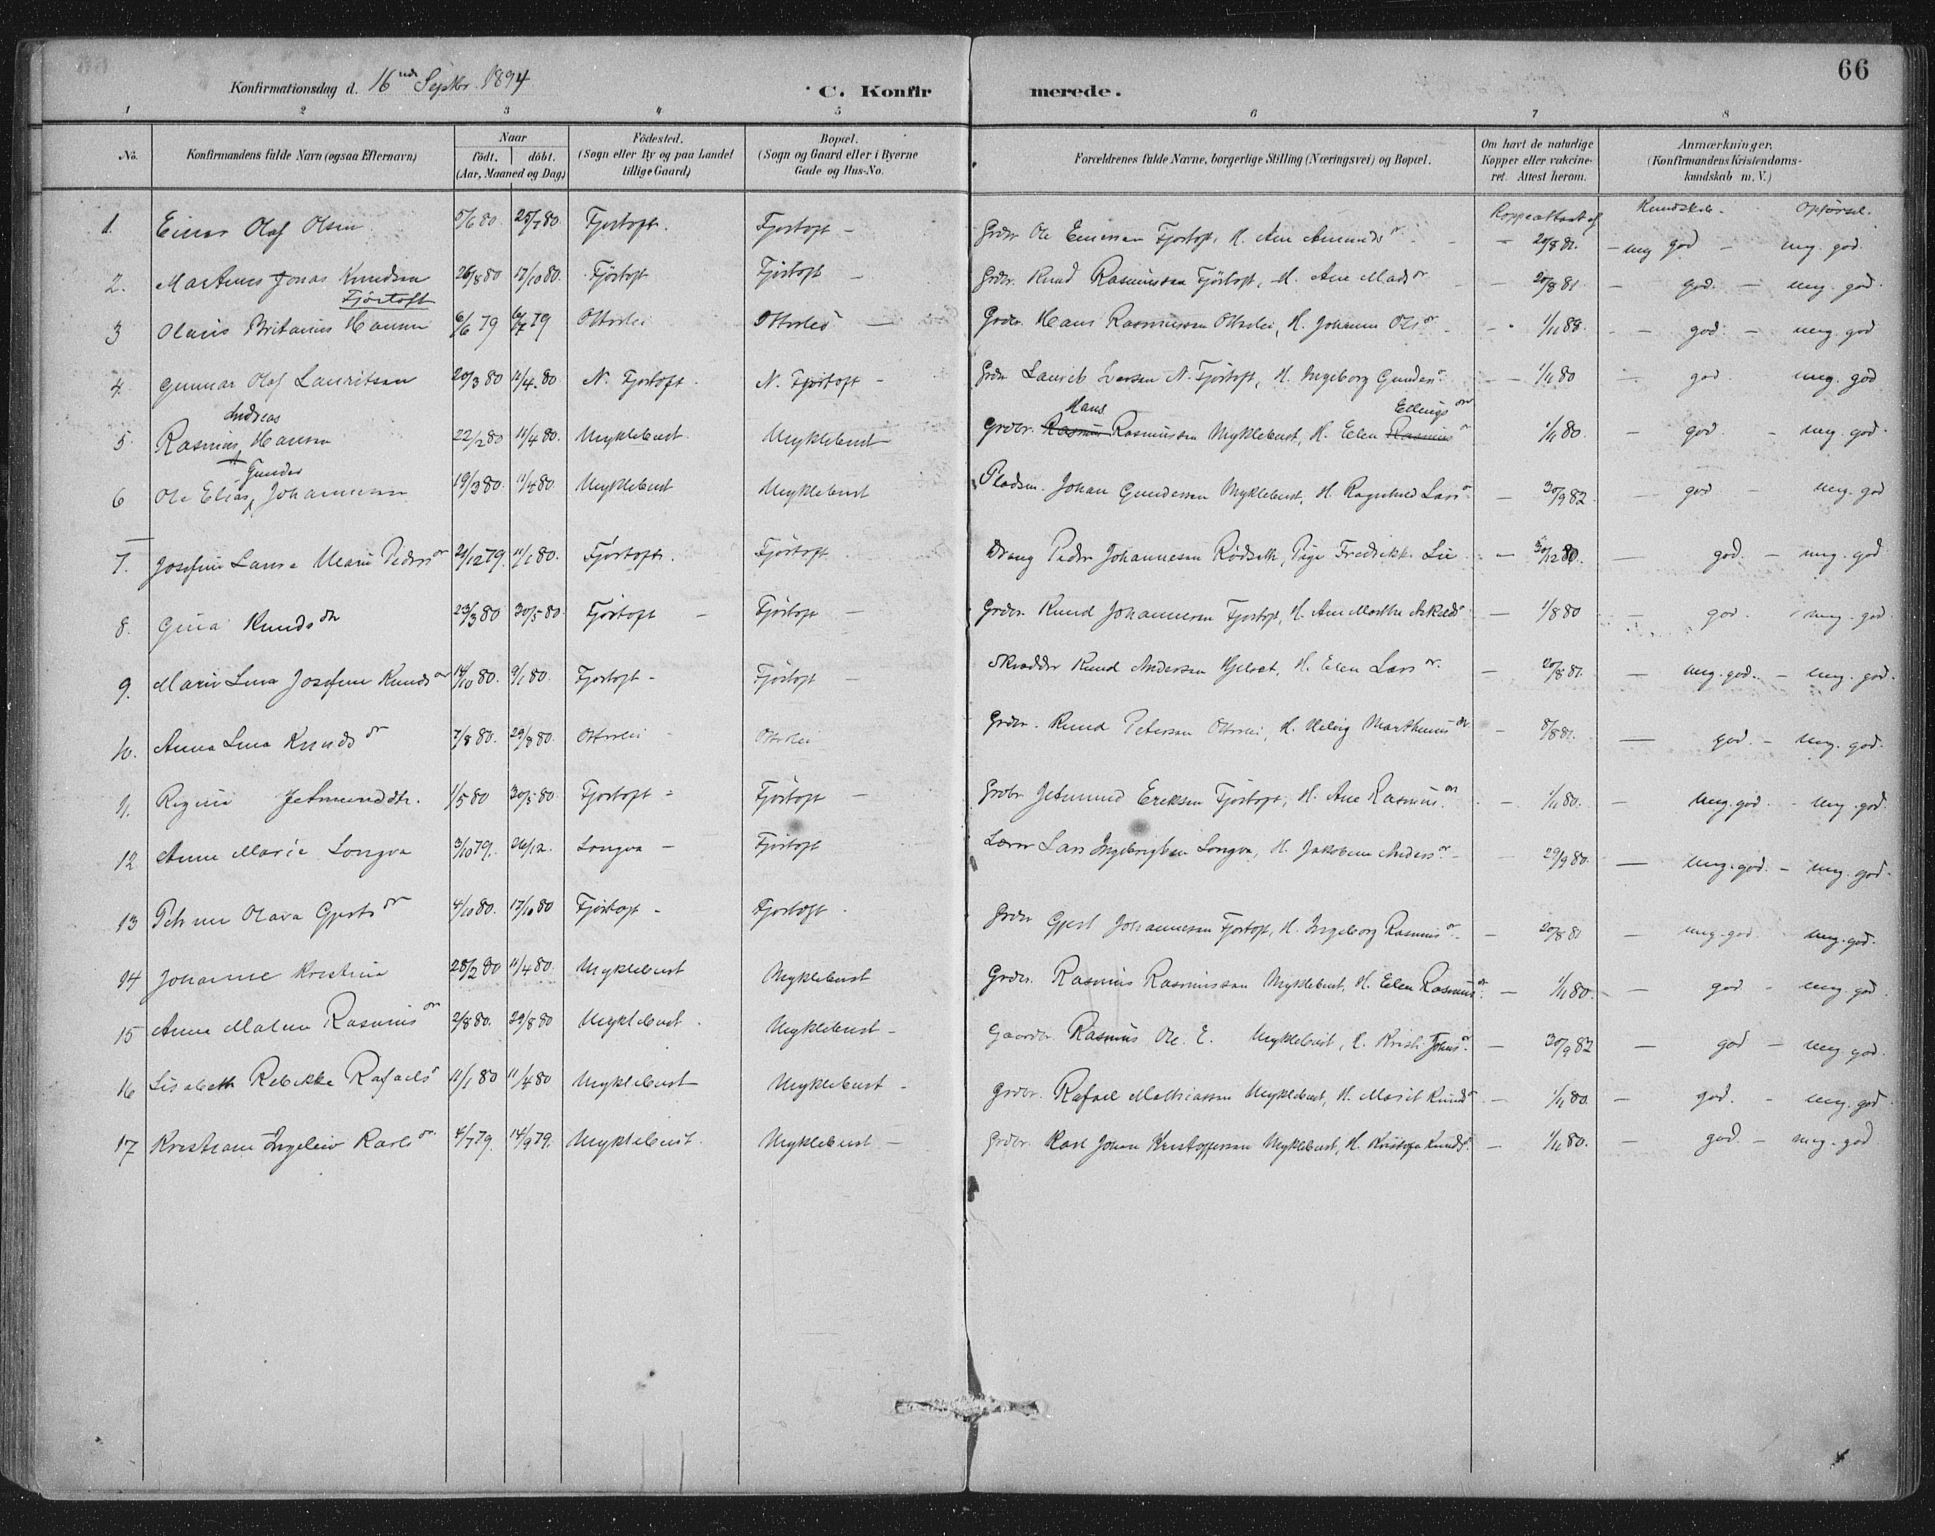 66
Konfirmationsdag d. 16nde Septbr. 1894
C. Konfir merede.
1 2 3 4 5 6 7 8
No. Konfirmandens fulde Navn (ogsaa Efternavn) Naar födt. döbt. (Aar, Maaned og Dag) Födested. (Sogn eller By og paa Landet tillige Gaard) Bopæl. (Sogn og Gaard eller i Byerne Gade og Hus-No. Forældrenes fulde Navne, borgerlige Stilling (Næringsvei) og Bopæl. Om havt de naturlige Kopper eller vakcineret. Attest herom. Anmærkninger, (Konfirmandens Kristendomskundskab m. V.)
Koppeattest af Kundskab. Opförsel.
1. Einar Olaf Olsen 5/6 80 25/7 80 Fjørtoft. Fjørtoft – Grdbr. Ole Einersen Fjørtoft, H. Ane Amundsdr – 20/8 81. – mg god – mg. god.
2. Martinus Jonas Knudsen Fjørtoft 26/8 80 17/10 80. Fjørtoft Fjørtoft – Grdbr. Knud Rasmussen Fjørtoft, H. Ane Madsdr – 20/8 81 – god. – mg. god.
3 Olaus Britanius Hansen 6/6 79 6/7 79 Otterlei Otterlei – Grdbr. Hans Rasmussen Otterlei, H. Johanne Olsdr – 1/11 80. – god. – mg. god
4. Gunnar Olaf Lauritsen 20/3 80 11/4 80. N. Fjørtoft. N. Fjørtoft – Grdbr. Laurits Iversen N. Fjørtoft, H. Ingeborg Gundersdr – 1/11 80 – god. mg. god
5. Rasmus Andreas Hansen 22/2 80 11/4 80. Myklebust. Myklebust Grdbr. Rasmus Hans Rasmussen Myklebust, H. Elen Rasmusdr Ellingsdr 1/11 80 – god. – mg. god.
6 Ole Elias Gunder Johannesen 19/3 80. 11/4 80. Myklebust Myklebust Pladsm. Johan Gundersen Myklebust, H. Ragnhild Larsdr – 30/9 82. – god – mg. god
7. Josefine Lansa Marie Pedersdr 29/12 79. 11/1 80. Fjørtoft. Fjørtoft Dreng Peder Johannesen Rødseth, Pige Fredrikke Lie – 30/12 80 – god. – mg. god
8. Gina Knudsdtr 23/3 80 30/5 80. Fjørtoft – Fjørtoft – Grdbr. Knud Johannesen Fjørtoft, H. Ane Marthe Askeldsdr – 1/8 80 – god. mg. god.
9. Marie Lina Josefine Knudsdr 14/10 80. 9/1 80. Fjørtoft – Fjørtoft – Skrædder Knud Andersen Hjelset, H. Elen Larsdr – 20/8 81. – mg. god. – mg. god.
10. Anna Lina Knudsdr 7/8 80. 29/8 80. Otterlei – Otterlei Grdbr. Knud Petersen Otterlei, H. Helvig Marthinusdtr – 8/8 81. – god. – mg. god.
11. Regine Jetmundsdtr. 1/5 80 30/5 80. Fjørtoft – Fjørtoft – Grdbr. Jetmund Eriksen Fjørtoft, H. Ane Rasmusdtr. – 1/11 80. – mg. god. – mg. god.
12 Anne Marie Longva 3/10 79. 26/12. Longva – Fjørtoft Lærer Lars Ingebrigtsen Longva, H. Jakobine Andersdr – 29/9 80. – mg. god. – mg. god.
13 Petrine Olava Gjertsdr 4/10 80. 17/10 80 Fjørtoft – Fjørtoft. Grdbr Gjert Johannesen Fjørtoft, H. Ingeborg Rasmusdr – 20/8 81 – mg. god. mg. god.
14 Johanne Kristine 28/2 80 11/4 80. Myklebust Myklebust Grdbr. Rasmus Rasmussen Myklebust, H. Elen Rasmusdr. – 1/11 80. – god – mg. god.
15 Anna Malene Rasmusdr 2/8 80. 29/8 80 Myklebust. Myklebust – Gaardbr. Rasmus Ole E. Myklebust, H. Kristi Johnsdr – 30/9 82 – god – mg. god.
16 Lisabeth Rebekka Rafaelsdr 11/1 80 11/4 80 Myklebust Myklebust – Grdbr. Rafael Mathiassen Myklebust, H. Marit Knudsdr – 1/11 80. – god. – mg. god
17 Kristiane Ingeleiv Karlsdr 4/7 79. 14/9 79. Myklebust. Myklebust – Grdbr. Karl Johan Kristoffersen Myklebust, H. Kristofa Knudsdr. – 1/11 80. – god. – mg. god